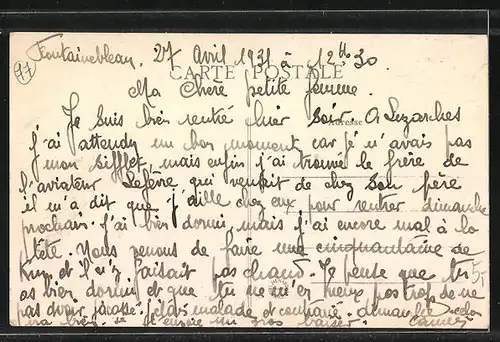 77
Fontainebleau, 27 Avril 1931 à 12h30
CARTE POSTALE
Ma Chère petite femme.
Je suis bien rentré hier soir. A Luzarches
j'ai attendu un bon moment car je n'avais pas
mon sifflet, mais enfin j'ai trouvé le frère de
l'aviateur Lefèvre qui venait de chez son père
il m'a dit que j'aille chez eux pour rentrer dimanche
prochain. J'ai bien dormi, mais j'ai encore mal à la
tête. Nous venons de faire une cinquantaine de
Km et il n'y faisait pas chaud. Je pense que tu
as bien dormi et que tu ne m'en veux pas trop de ne
pas avoir malade et dimanche
encore un gros baiser.